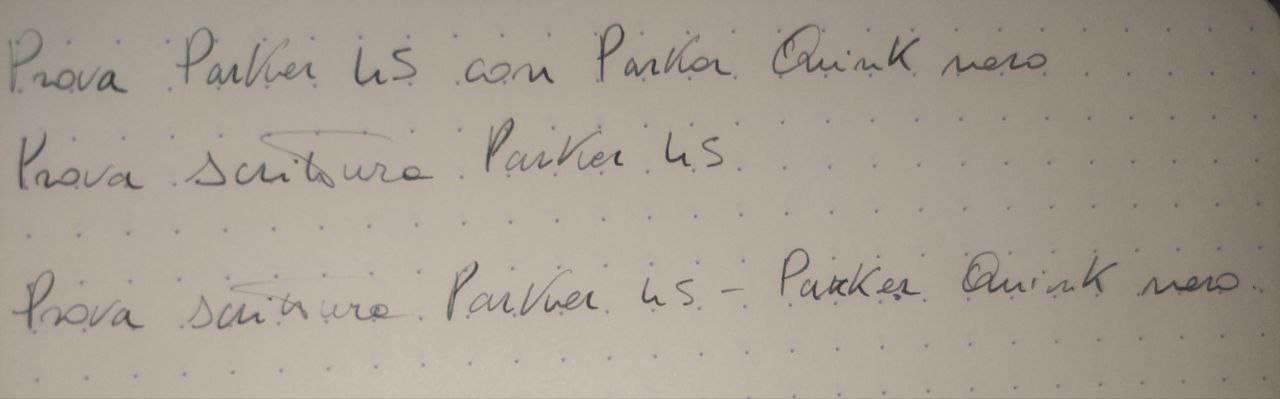 Prova Parker 45 con Parker Quink nero
Prova scrittura Parker 45
Prova scrittura Parker 45 - Parker Quink nero.